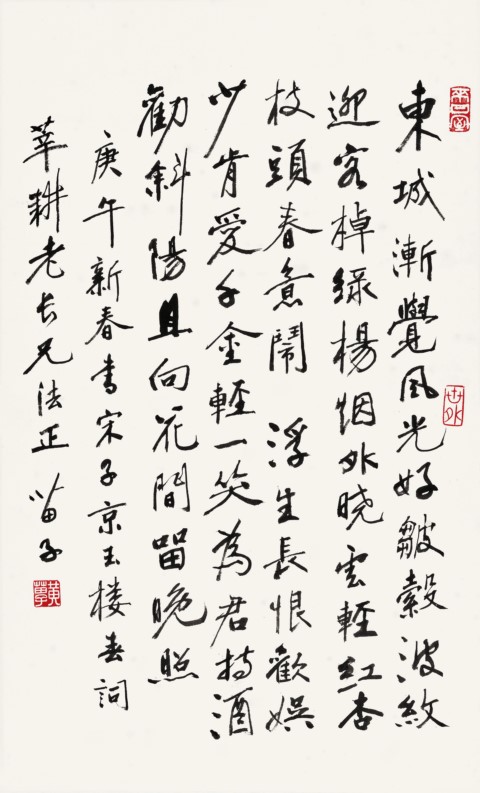 東城漸覺風光好皺縠波紋
迎客棹綠楊烟外晓雲輕紅杏
枝頭春意鬧 浮生長恨歡娛
少肯愛千金輕一笑為君持酒
勸斜陽且向花間留晚照
庚午新春書宋子京玉楼春詞
莘耕老长兄法正 苗子